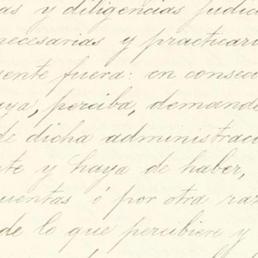 as y diligencias judic
necesarias y practicar
uente fuera: en consec
ya, perciba, demande
de dicha administrac
te y haya de haber,
uentas ó por otra raz
de lo que percibiere y